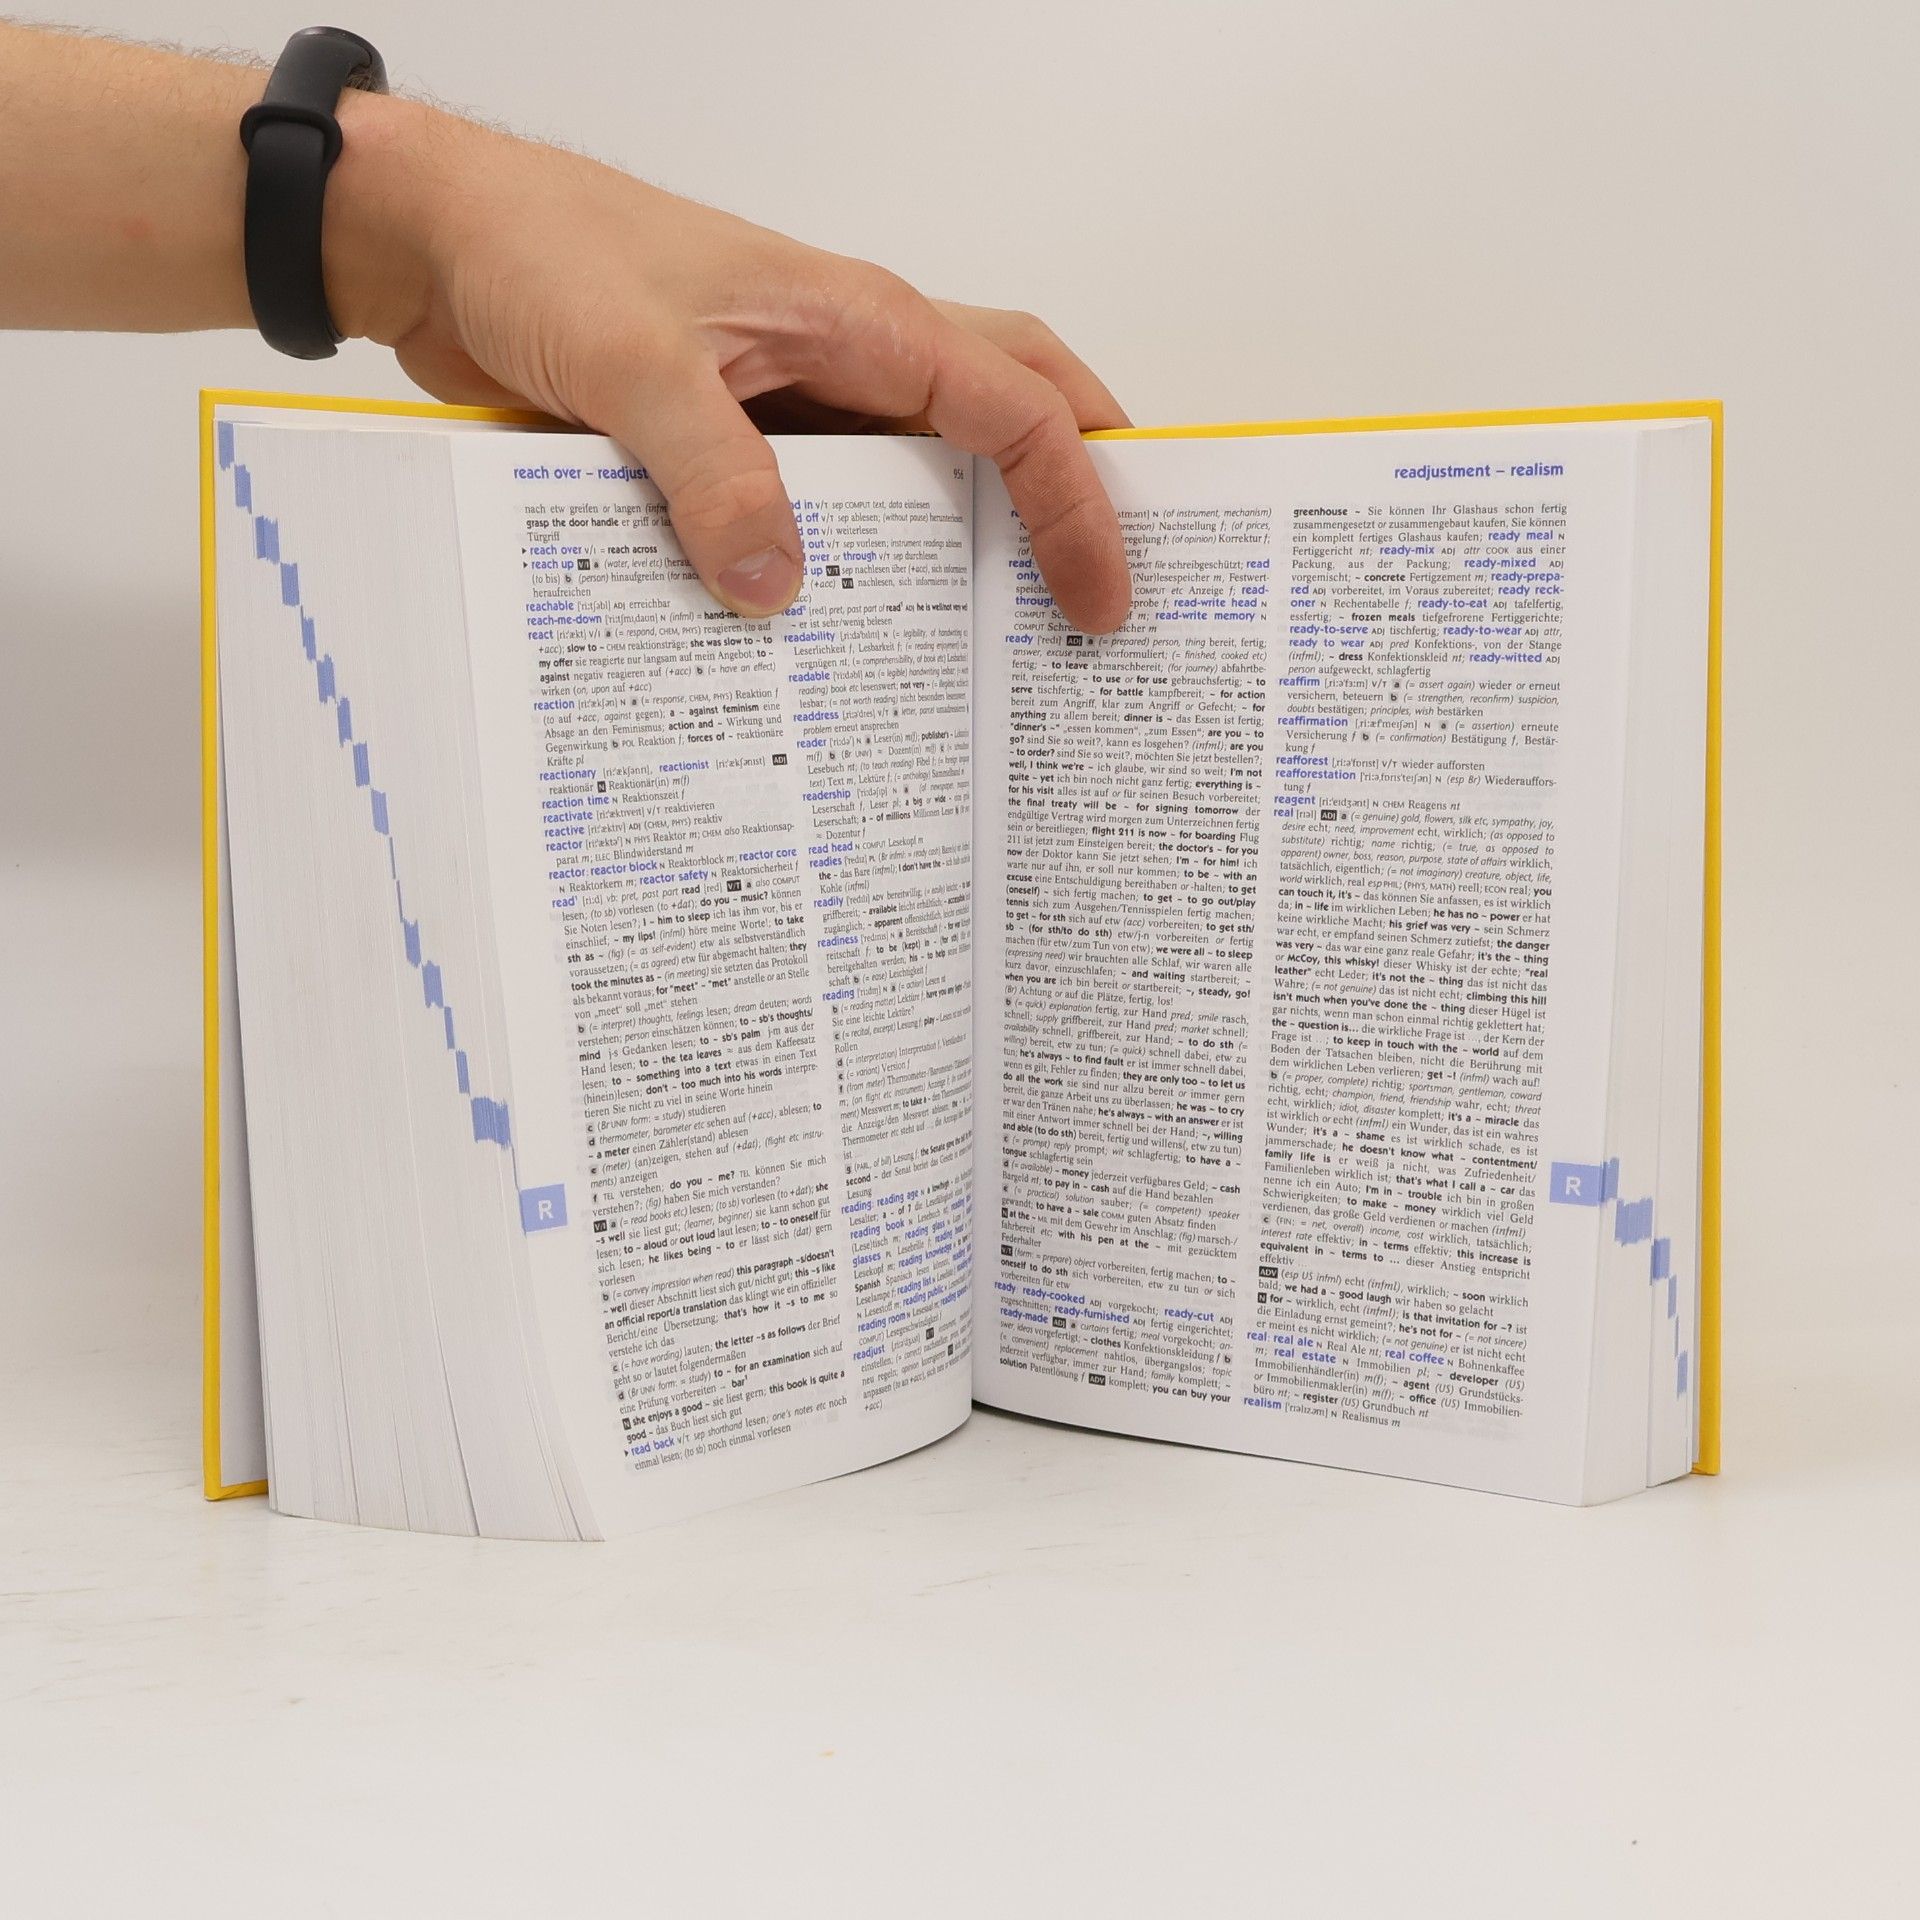 reach over – readjust
956
nach etw greifen or langen (infm
grasp the door handle er griff or
Türgriff
▸ reach over V/I = reach across
▸ reach up V/I a (water, level etc)
(to bis) b (person) hinaufgreifen (for nach
heraufreichen
reachable ADJ erreichbar
reach-me-down N (infml) = hand-me-
react V/I a (= respond, CHEM, PHYS) reagieren (to auf
+acc); slow to ~ CHEM reaktionsträge; she was slow to ~ to
my offer sie reagierte nur langsam auf mein Angebot; to ~
against negativ reagieren auf (+acc) b (= have an effect)
wirken (on, upon auf +acc)
reaction N a (= response, CHEM, PHYS) Reaktion f
(to auf +acc, against gegen); a ~ against feminism eine
Absage an den Feminismus; action and ~ Wirkung und
Gegenwirkung b POL Reaktion f; forces of ~ reaktionäre
Kräfte pl
reactionary, reactionist ADJ
reaktionär N Reaktionär(in) m(f)
reaction time N Reaktionszeit f
reactivate V/T reaktivieren
reactive ADJ (CHEM, PHYS) reaktiv
reactor N PHYS Reaktor m; CHEM also Reaktionsap-
parat m; ELEC Blindwiderstand m
reactor: reactor block N Reaktorblock m; reactor core
N Reaktorkern m; reactor safety N Reaktorsicherheit f
read¹ [ri:d] vb: pret, past part read [red] V/T a also COMPUT
lesen; (to sb) vorlesen (to +dat); do you ~ music? können
Sie Noten lesen?; I ~ him to sleep ich las ihm vor, bis er
einschlief; ~ my lips! (infml) höre meine Worte!; to take
sth as ~ (fig) (= as self-evident) etw als selbstverständlich
voraussetzen; (= as agreed) etw für abgemacht halten; they
took the minutes as ~ (in meeting) sie setzten das Protokoll
als bekannt voraus; for "meet" ~ "met" anstelle or an Stelle
von „meet“ soll „met“ stehen
b (= interpret) thoughts, feelings lesen; dream deuten; words
verstehen; person einschätzen können; to ~ sb's thoughts/
mind j-s Gedanken lesen; to ~ sb's palm j-m aus der
Hand lesen; to ~ the tea leaves ≈ aus dem Kaffeesatz
lesen; to ~ something into a text etwas in einen Text
(hinein)lesen; don't ~ too much into his words interpre-
tieren Sie nicht zu viel in seine Worte hinein
c (Br UNIV form: = study) studieren
d thermometer, barometer etc sehen auf (+acc), ablesen; to
~ a meter einen Zähler(stand) ablesen
e (meter) (an)zeigen, stehen auf (+dat), (flight etc instru-
ments) anzeigen
f TEL verstehen; do you ~ me? TEL können Sie mich
verstehen?; (fig) haben Sie mich verstanden?
V/I a (= read books etc) lesen; (to sb) vorlesen (to +dat); she
~s well sie liest gut; (learner, beginner) sie kann schon gut
lesen; to ~ aloud or out loud laut lesen; to ~ to oneself für
sich lesen; he likes being ~ to er lässt sich (dat) gern
vorlesen
b (= convey impression when read) this paragraph ~s/doesn't
~ well dieser Abschnitt liest sich gut/nicht gut; this ~s like
an official report/a translation das klingt wie ein offizieller
Bericht/eine Übersetzung; that's how it ~s to me so
verstehe ich das
c (= have wording) lauten; the letter ~s as follows der Brief
geht so or lautet folgendermaßen
d (Br UNIV form: = study) to ~ for an examination sich auf
eine Prüfung vorbereiten → bar¹
N she enjoys a good ~ sie liest gern; this book is quite a
good ~ das Buch liest sich gut
▸ read back V/T sep shorthand lesen; one's notes etc noch
einmal lesen; (to sb) noch einmal vorlesen
d in V/T sep COMPUT text, data einlesen
d off V/T sep ablesen; (without pause) herunterlesen
d on V/I weiterlesen
out V/T sep vorlesen; instrument readings ablesen
over or through V/T sep durchlesen
up V/T sep nachlesen über (+acc), sich informieren
(+acc) V/I nachlesen, sich informieren
read² [red] pret, past part of read¹ ADJ he is well/not very well
~ er ist sehr/wenig belesen
readability N (= legibility, of handwriting etc)
Leserlichkeit f, Lesbarkeit f; (= reading enjoyment)
vergnügen nt; (= comprehensibility, of book etc) Lesbarkeit
readable ADJ (= legible) handwriting lesbar;
reading) book etc lesenswert; not very ~
lesbar; (= not worth reading) nicht besonders lesenswert
readdress V/T a letter, parcel umadressieren
problem erneut ansprechen
reader N a Leser(in) m(f); publisher's ~
m(f) b (Br UNIV) ≈ Dozent(in) m(f)
Lesebuch nt; (to teach reading) Fibel f;
text) Text m, Lektüre f; (= anthology) Sammelband m
readership N a (of newspaper,
Leserschaft f, Leser pl; a big or wide ~
Leserschaft; a ~ of millions Millionen Leser
≈ Dozentur f
read head N COMPUT Lesekopf m
readies PL (Br infml: = ready cash) Bares
the ~ das Bare (infml); I don't have the ~
Kohle (infml)
readily ADV bereitwillig; (= easily) leicht;
griffbereit; ~ available leicht erhältlich; ~
zugänglich; ~ apparent offensichtlich,
readiness N a Bereitschaft f;
reitschaft f; to be (kept) in ~ (for sth)
bereitgehalten werden; his ~ to help seine
schaft b (= ease) Leichtigkeit f
reading N a (= action) Lesen nt
b (= reading matter) Lektüre f; have you any light ~
Sie eine leichte Lektüre?
c (= recital, excerpt) Lesung f; play ~ Lesen nt mit
Rollen
d (= interpretation) Interpretation f,
e (= variant) Version f
f (from meter) Thermometer-/Barometer-
m; (on flight etc instruments) Anzeige f;
ment) Messwert m; to take a ~ den
die Anzeige/den Messwert ablesen; the ~
Thermometer etc steht auf
ist
g (PARL, of bill) Lesung f; the Senate gave
second ~ der Senat berief das Gesetz
Lesung
reading: reading age N
Lesealter; a ~ of 7 die Lesefähigkeit
reading book N Lesebuch nt; reading
(Lese)tisch m; reading glass
glasses PL Lesebrille f; reading
Lesekopf m; reading knowledge
Spanish Spanisch lesen können;
Leselampe f; reading list N
N Lesestoff m; reading public
reading room N Lesesaal m;
COMPUT) Lesegeschwindigkeit f
readjust
einstellen; (= correct)
neu regeln;
anpassen (to an +acc),
+acc)
R
readjustment – realism
stmənt] N (of instrument, mechanism)
Nachstellung f; (of prices,
regelung f; (of opinion) Korrektur f;
ung f
read: COMPUT file schreibgeschützt; read
only (Nur)lesespeicher m, Festwert-
speiche COMPUT etc Anzeige f; read-
through probe f; read-write head N
COMPUT f m; read-write memory N
COMPUT Schre speicher m
ready ADJ a (= prepared) person, thing bereit, fertig;
answer, excuse parat, vorformuliert; (= finished, cooked etc)
fertig; ~ to leave abmarschbereit; (for journey) abfahrtbe-
reit, reisefertig; ~ to use or for use gebrauchsfertig; ~ to
serve tischfertig; ~ for battle kampfbereit; ~ for action
bereit zum Angriff, klar zum Angriff or Gefecht; ~ for
anything zu allem bereit; dinner is ~ das Essen ist fertig;
"dinner's ~" „essen kommen“, „zum Essen“; are you ~ to
go? sind Sie so weit?, kann es losgehen? (infml); are you
~ to order? sind Sie so weit?, möchten Sie jetzt bestellen?;
well, I think we're ~ ich glaube, wir sind so weit; I'm not
quite ~ yet ich bin noch nicht ganz fertig; everything is ~
for his visit alles ist auf or für seinen Besuch vorbereitet;
the final treaty will be ~ for signing tomorrow der
endgültige Vertrag wird morgen zum Unterzeichnen fertig
sein or bereitliegen; flight 211 is now ~ for boarding Flug
211 ist jetzt zum Einsteigen bereit; the doctor's ~ for you
now der Doktor kann Sie jetzt sehen; I'm ~ for him! ich
warte nur auf ihn, er soll nur kommen; to be ~ with an
excuse eine Entschuldigung bereithaben or -halten; to get
(oneself) ~ sich fertig machen; to get ~ to go out/play
tennis sich zum Ausgehen/Tennisspielen fertig machen;
to get ~ for sth sich auf etw (acc) vorbereiten; to get sth/
sb ~ (for sth/to do sth) etw/j-n vorbereiten or fertig
machen (für etw/zum Tun von etw); we were all ~ to sleep
(expressing need) wir brauchten alle Schlaf, wir waren alle
kurz davor, einzuschlafen; ~ and waiting startbereit; ~
when you are ich bin bereit or startbereit; ~, steady, go!
(Br) Achtung or auf die Plätze, fertig, los!
b (= quick) explanation fertig, zur Hand pred; smile rasch,
schnell; supply griffbereit, zur Hand pred; market schnell;
availability schnell, griffbereit, zur Hand; ~ to do sth (=
willing) bereit, etw zu tun; (= quick) schnell dabei, etw zu
tun; he's always ~ to find fault er ist immer schnell dabei,
wenn es gilt, Fehler zu finden; they are only too ~ to let us
do all the work sie sind nur allzu bereit or immer gern
bereit, die ganze Arbeit uns zu überlassen; he was ~ to cry
er war den Tränen nahe; he's always ~ with an answer er ist
mit einer Antwort immer schnell bei der Hand; ~, willing
and able (to do sth) bereit, fertig und willens(, etw zu tun)
c (= prompt) reply prompt; wit schlagfertig; to have a ~
tongue schlagfertig sein
d (= available) ~ money jederzeit verfügbares Geld; ~ cash
Bargeld nt; to pay in ~ cash auf die Hand bezahlen
e (= practical) solution sauber; (= competent) speaker
gewandt; to have a ~ sale COMM guten Absatz finden
N at the ~ MIL mit dem Gewehr im Anschlag; (fig) marsch-/
fahrbereit etc; with his pen at the ~ mit gezücktem
Federhalter
V/T (form: = prepare) object vorbereiten, fertig machen; to ~
oneself to do sth sich vorbereiten, etw zu tun or sich
vorbereiten für etw
ready: ready-cooked ADJ vorgekocht; ready-cut ADJ
zugeschnitten; ready-furnished ADJ fertig eingerichtet;
ready-made ADJ a curtains fertig; meal vorgekocht; an-
swer, ideas vorgefertigt; ~ clothes Konfektionskleidung f b
(= convenient) replacement nahtlos, übergangslos; topic
jederzeit verfügbar, immer zur Hand; family komplett; ~
solution Patentlösung f ADV komplett; you can buy your
greenhouse ~ Sie können Ihr Glashaus schon fertig
zusammengesetzt or zusammengebaut kaufen, Sie können
ein komplett fertiges Glashaus kaufen; ready meal N
Fertiggericht nt; ready-mix ADJ attr COOK aus einer
Packung, aus der Packung; ready-mixed ADJ
vorgemischt; ~ concrete Fertigzement m; ready-prepa-
red ADJ vorbereitet, im Voraus zubereitet; ready reck-
oner N Rechentabelle f; ready-to-eat ADJ tafelfertig,
essfertig; ~ frozen meals tiefgefrorene Fertiggerichte;
ready-to-serve ADJ tischfertig; ready-to-wear ADJ attr,
ready to wear ADJ pred Konfektions-, von der Stange
(infml); ~ dress Konfektionskleid nt; ready-witted ADJ
person aufgeweckt, schlagfertig
reaffirm V/T a (= assert again) wieder or erneut
versichern, beteuern b (= strengthen, reconfirm) suspicion,
doubts bestätigen; principles, wish bestärken
reaffirmation N a (= assertion) erneute
Versicherung f b (= confirmation) Bestätigung f, Bestär-
kung f
reafforest V/T wieder aufforsten
reafforestation N (esp Br) Wiederauffors-
tung f
reagent N CHEM Reagens nt
real ADJ a (= genuine) gold, flowers, silk etc, sympathy, joy,
desire echt; need, improvement echt, wirklich; (as opposed to
substitute) richtig; name richtig; (= true, as opposed to
apparent) owner, boss, reason, purpose, state of affairs wirklich,
tatsächlich, eigentlich; (= not imaginary) creature, object, life,
world wirklich, real esp PHIL; (PHYS, MATH) reell; ECON real; you
can touch it, it's ~ das können Sie anfassen, es ist wirklich
da; in ~ life im wirklichen Leben; he has no ~ power er hat
keine wirkliche Macht; his grief was very ~ sein Schmerz
war echt, er empfand seinen Schmerz zutiefst; the danger
was very ~ das war eine ganz reale Gefahr; it's the ~ thing
or McCoy, this whisky! dieser Whisky ist der echte; "real
leather" echt Leder; it's not the ~ thing das ist nicht das
Wahre; (= not genuine) das ist nicht echt; climbing this hill
isn't much when you've done the ~ thing dieser Hügel ist
gar nichts, wenn man schon einmal richtig geklettert hat;
the ~ question is... die wirkliche Frage ist ..., der Kern der
Frage ist ...; to keep in touch with the ~ world auf dem
Boden der Tatsachen bleiben, nicht die Berührung mit
dem wirklichen Leben verlieren; get ~! (infml) wach auf!
b (= proper, complete) richtig; sportsman, gentleman, coward
richtig, echt; champion, friend, friendship wahr, echt; threat
echt, wirklich; idiot, disaster komplett; it's a ~ miracle das
ist wirklich or echt (infml) ein Wunder, das ist ein wahres
Wunder; it's a ~ shame es ist wirklich schade, es ist
jammerschade; he doesn't know what ~ contentment/
family life is er weiß ja nicht, was Zufriedenheit/
Familienleben wirklich ist; that's what I call a ~ car das
nenne ich ein Auto; I'm in ~ trouble ich bin in großen
Schwierigkeiten; to make ~ money wirklich viel Geld
verdienen, das große Geld verdienen or machen (infml)
c (FIN: = net, overall) income, cost wirklich, tatsächlich;
interest rate effektiv; in ~ terms effektiv; this increase is
equivalent in ~ terms to ... dieser Anstieg entspricht
effektiv ...
ADV (esp US infml) echt (infml), wirklich; ~ soon wirklich
bald; we had a ~ good laugh wir haben so gelacht
N for ~ wirklich, echt (infml); is that invitation for ~? ist
die Einladung ernst gemeint?; he's not for ~ (= not sincere)
er meint es nicht wirklich; (= not genuine) er ist nicht echt
real: real ale N Real Ale nt; real coffee N Bohnenkaffee
m; real estate N Immobilien pl; ~ developer (US)
Immobilienhändler(in) m(f); ~ agent (US) Grundstücks-
or Immobilienmakler(in) m(f); ~ office (US) Immobilien-
büro nt; ~ register (US) Grundbuch nt
realism N Realismus m
R